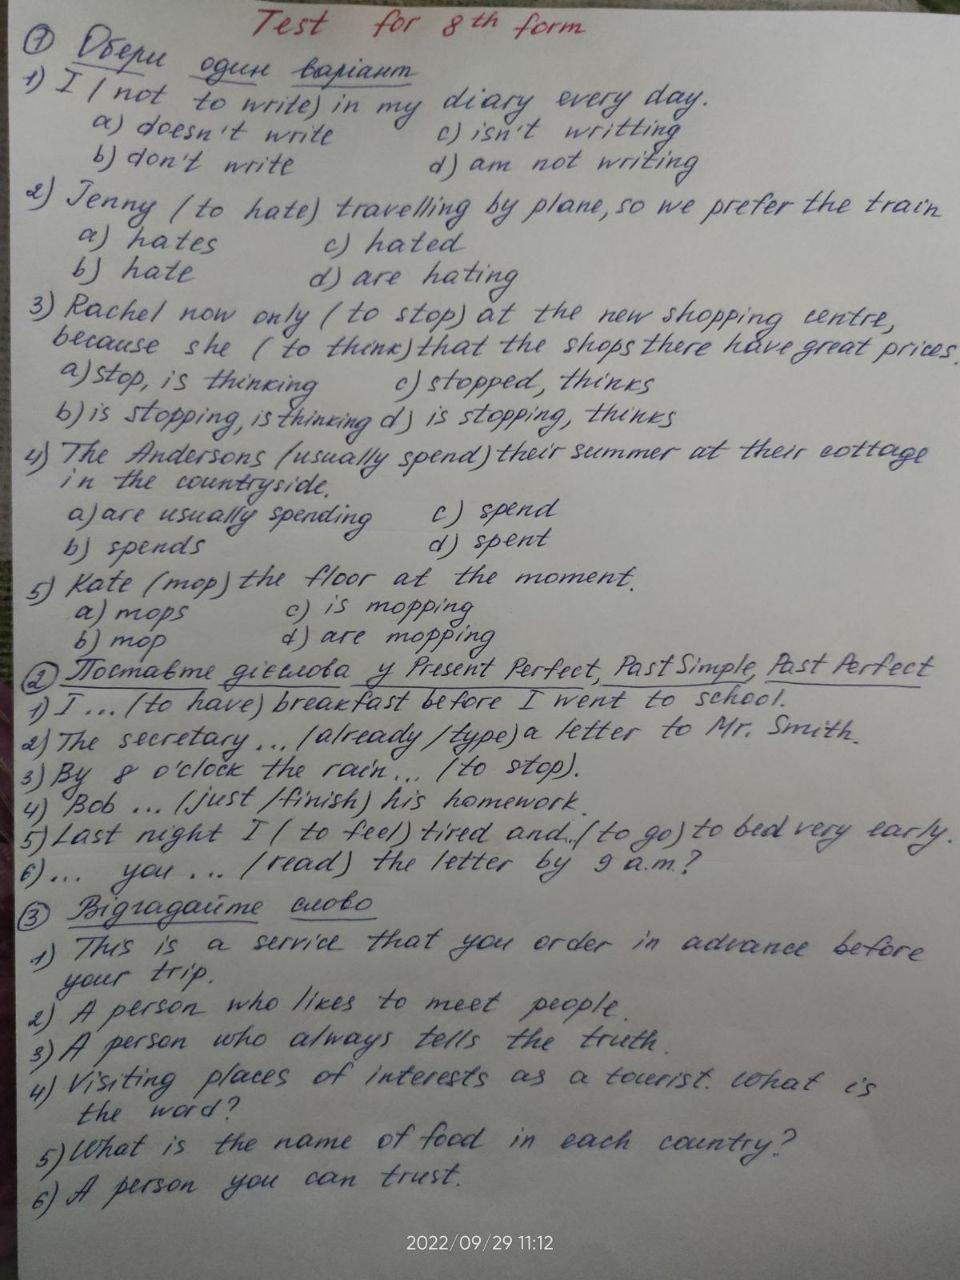 Test for 8th form
① Обери один варіант
1) I (not to write) in my diary every day.
a) doesn't write c) isn't writting
b) don't write d) am not writing
2) Jenny (to hate) travelling by plane, so we prefer the train
a) hates c) hated
b) hate d) are hating
3) Rachel now only (to stop) at the new shopping centre,
because she (to think) that the shops there have great prices.
a) stop, is thinking c) stopped, thinks
b) is stopping, is thinking d) is stopping, thinks
4) The Andersons (usually spend) their summer at their cottage
in the countryside.
a) are usually spending c) spend
b) spends d) spent
5) Kate (mop) the floor at the moment.
a) mops c) is mopping
b) mop d) are mopping
② Поставте дієслова у Present Perfect, Past Simple, Past Perfect
1) I ... (to have) breakfast before I went to school.
2) The secretary ... (already/type) a letter to Mr. Smith.
3) By 8 o'clock the rain ... (to stop).
4) Bob ... (just/finish) his homework.
5) Last night I (to feel) tired and .. (to go) to bed very early.
6) ... you ... (read) the letter by 9 a.m.?
③ Відгадайте слово
1) This is a service that you order in advance before
your trip.
2) A person who likes to meet people.
3) A person who always tells the truth.
4) Visiting places of interests as a tourist. What is
the word?
5) What is the name of food in each country?
6) A person you can trust.
2022/09/29 11:12